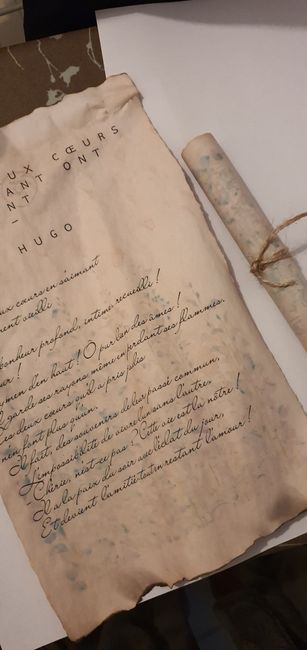 UX CŒURS
ANT ONT
NT –
HUGO
ux cœurs en s'aimant
ment vieilli
bonheur profond, intime, recueilli !
ur !
ymen d'en haut ! Ô pur lien des âmes !
Il garde ses rayons même en perdant ses flammes.
Ces deux cœurs qu'il a pris jadis
n'en font plus qu'un.
Il fait, des souvenirs de leur passé commun,
L'impossibilité de vivre l'un sans l'autre.
Chérie, n'est-ce pas ? Cette vie est la nôtre !
Il a la paix du soir avec l'éclat du jour,
Et devient l'amitié tout en restant l'amour !